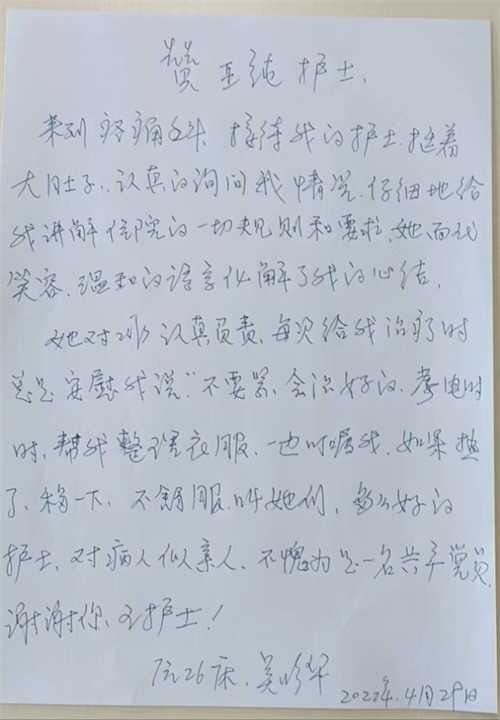 赞亚纯护士.
来到疼痛科 接待我的护士.挺着
大肚子.认真的询问我情况.仔细地给
我讲解住院的一切规则和要求,她面化
笑容.温和的语言化解了我的心结.
她对工作认真负责.每次给我治疗时
总是安慰我说:"不要紧.会治好的.烤电时
时,帮我整理衣服.一边叮嘱我.如果热
了.移一下.不舒服.叫她们,多么好的
护士.对病人似亲人.不愧为是一名共产党员.
谢谢你.王护士!
26床.吴
2022年.4月29日